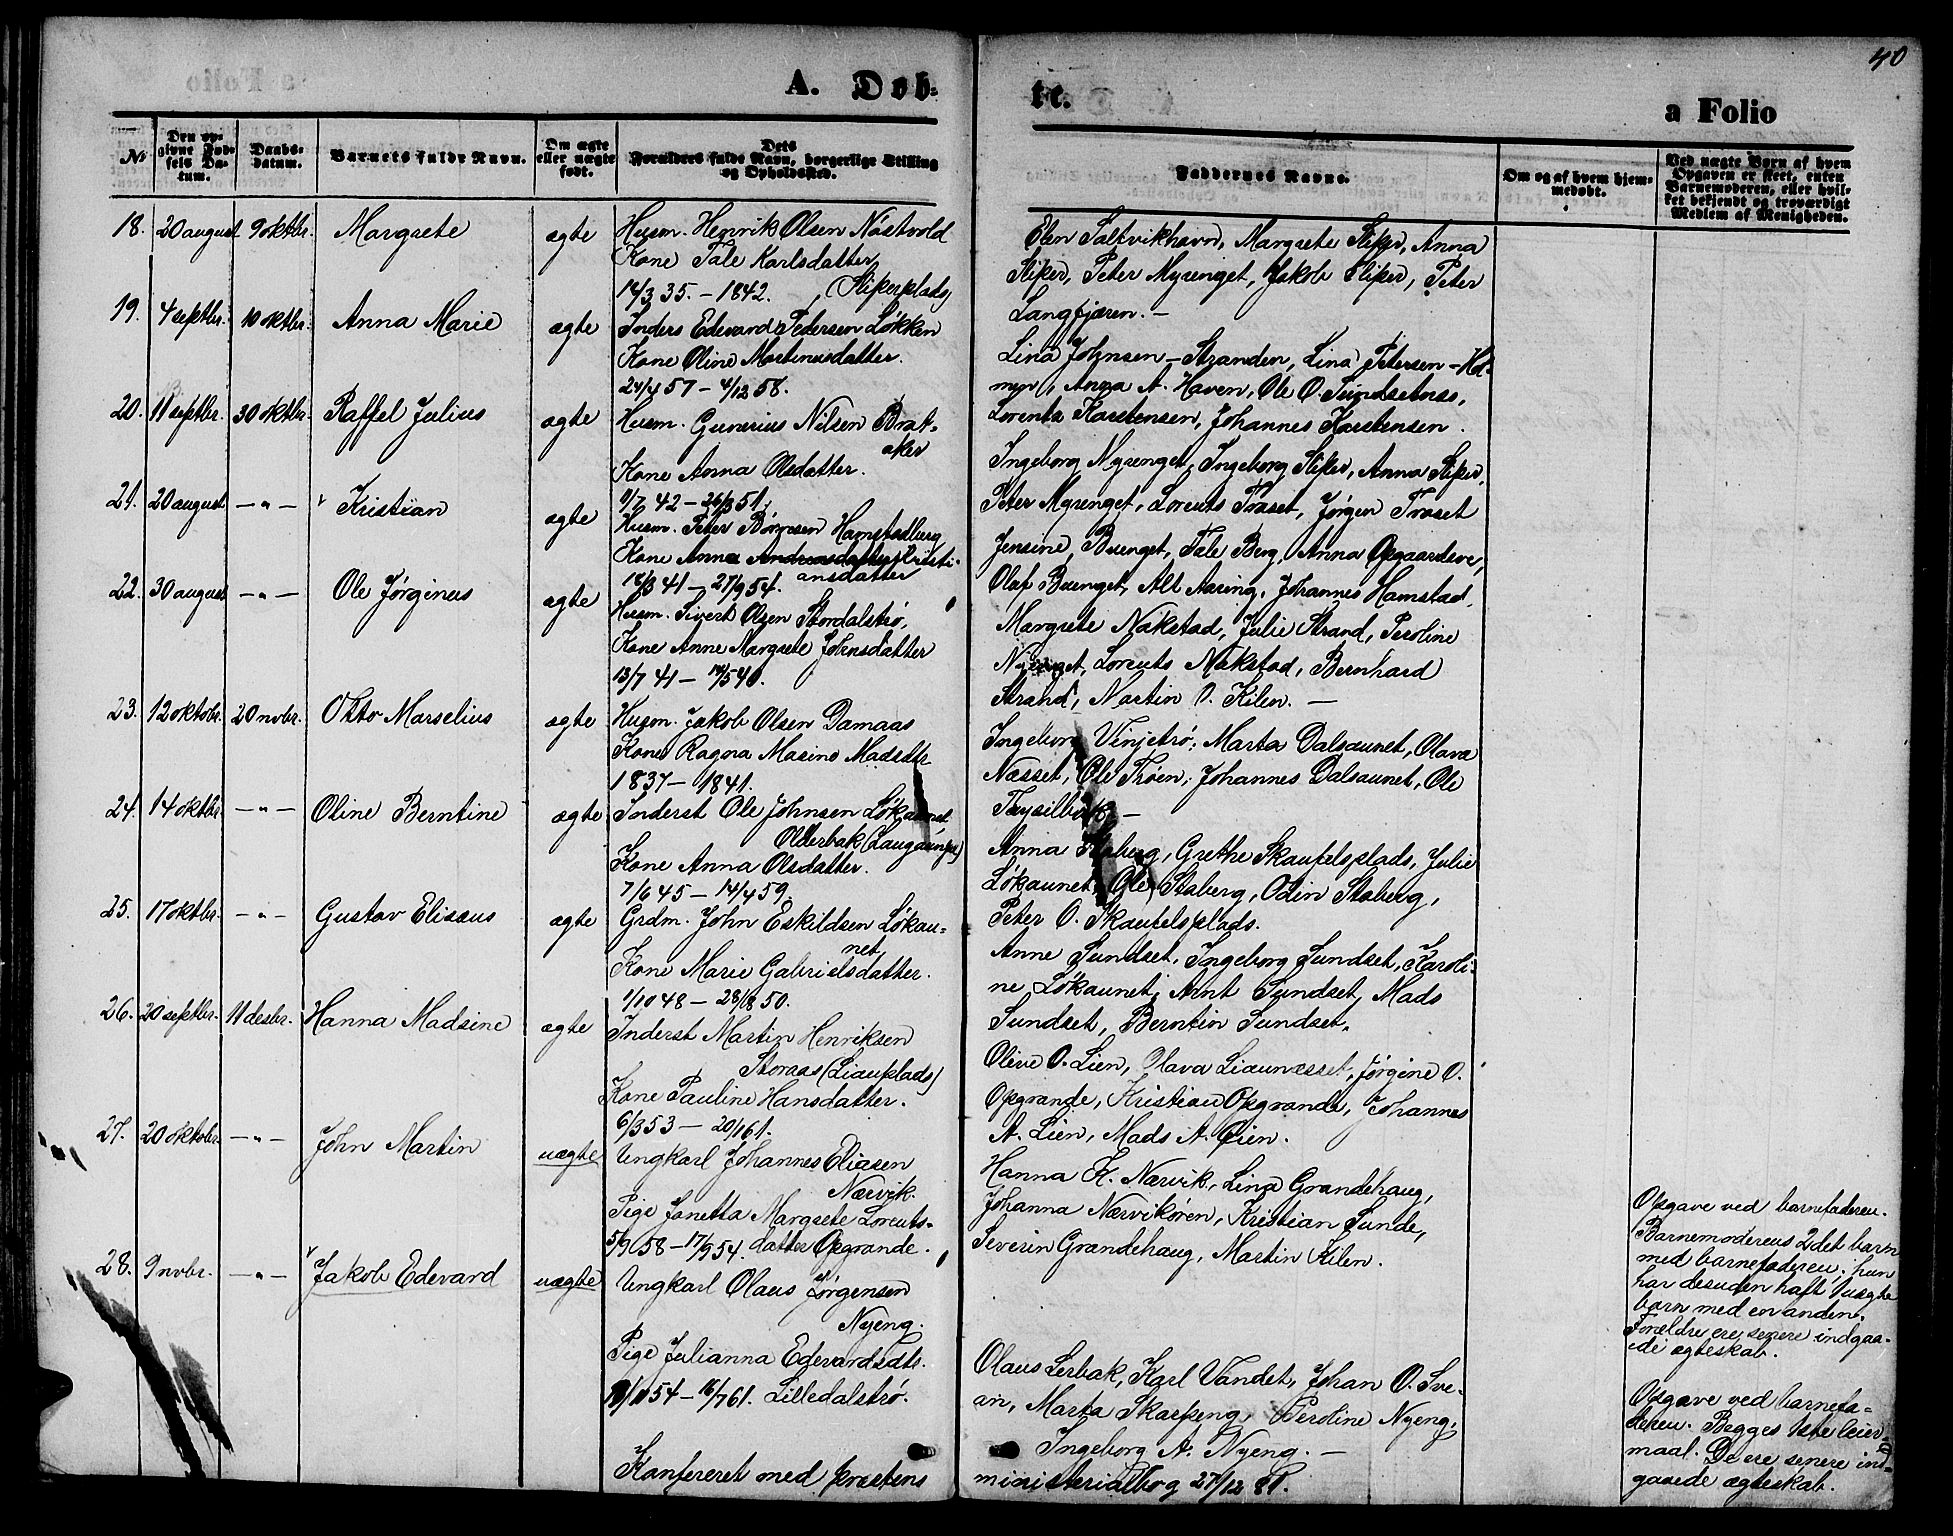 40
A. Døb-
te.
a Folio
No
Den op-
givne Fød-
sels Da-
tum.
Daabs-
datum.
Barnets fulde Navn.
Om ægte
eller uægte
født.
Dets
Forældres fulde Navn, borgerlige Stilling
og Opholdssted.
Faddernes Navne.
Om og af hvem hjem-
medøbt.
Ved uægte Børn af hvem
Opgaven er skeet, enten
Barnemoderen, eller hvil-
ket bekjendt og troværdigt
Medlem af Menigheden.
18. 20 august 9 oktbr. Margrete ægte Husm. Henrik Olsen Nøstvold
Kone Tale Karlsdatter
14/3 35. - 1842. (Sliperplads)
Elen Saltvikhavn, Margrete Sliper, Anna
Sliper, Peter Myrenget, Jakob Sliper, Peter
Langfjæren. -
19. 4 septbr. 10 oktbr. Anna Marie ægte Inders Edevard Pedersen Løkken
Kone Oline Martinusdatter.
24/4 57 - 4/12 58.
Lina Johnsen - Stranden, Lina Petersen - Hol-
myr, Anna A. Haven, Ole O. Sundsetnes,
Lorents Karstensen, Johannes Karstensen.
20. 11 septbr. 30 oktbr. Raffel Julius ægte Husm. Gunerius Nilsen Brat-
aker
Kone Anna Olsdatter.
9/7 42 - 26/3 51.
Ingeborg Myrenget, Ingeborg Sliper, Anna Sliper,
Peter Myrenget, Lorents Træset, Jørgen Træset
21. 20 august - " - Kristian ægte Husm. Peter Børresen Hamstadberg
Kone Anna Andreasdatter Kristi-
ansdatter
18/3 41 - 27/9 54.
Jensine Buenget, Tale Berg, Anna Opgaardeve,
Olaf Buenget, Alt Aasing, Johannes Hamstad.
22. 30 august - " - Ole Jørginus ægte Husm. Sivert Olsen Stordalstrø,
Kone Anne Margrete Johnsdatter
13/7 41 - 14/5 40.
Margrete Nakstad, Julie Strand, Peroline
Nyenget, Lorents Nakstad, Bernhard
Strand, Martin O. Kilen. -
23. 12 oktobr. 20 novbr. Otto Marselius ægte Husm. Jakob Olsen Damaas
Kone Ragna Masine Madsdtr
1837 - 1841.
Ingeborg Vinjetrø, Marta Dalsaunet, Olava
Næsset, Ole Trøen, Johannes Dalsaunet, Ole
Trysilbakk -
24. 14 oktbr. - " - Oline Berntine ægte Inderst Ole Johnsen Løkaunet
Olderbak (Laugaunpl)
Kone Anna Olsdatter.
7/6 45 - 14/4 59.
Anna Staberg, Grethe Skaufelsplads, Julie
Løkaunet, Ole Staberg, Odin Staberg,
Peter O. Skaufelsplads.
25. 17 oktbr. - " - Gustav Elisæus ægte Grdm. John Eskildsen Løkau-
net
Kone Marie Gabrielsdatter.
1/10 48 - 28/8 50.
Anne Sundset, Ingeborg Sundset, Karoli-
ne Løkaunet, Arnt Sundset, Mads
Sundset, Berntin Sundset.
26. 20 septbr. 11 desbr. Hanna Madsine ægte Inderst Martin Henriksen
Storaas (Liauplads)
Kone Pauline Hansdatter.
6/3 53 - 20/1 61.
Olive O. Lien, Olava Liaunæsset, Jørgine O.
Opgrande, Kristian Opgrande, Johannes
A. Lien, Mads A. Øien.
27. 20 oktobr. - " - John Martin uægte Ungkarl Johannes Eliasen
Nærvik.
Pige Janetta Margrete Lorents-
5/9 58 - 17/9 54. datter Opgrande.
Hanna E. Nærvik, Lina Grandehaug,
Johanna Nærvikøren, Kristian Sunde,
Severin Grandehaug, Martin Kilen.
Opgave ved barnefaderen.
Barnemoderens 2det barn
med barnefaderen; hun
har desuden haft 1 uægte
barn med en anden.
Forældre ere senere indgaa-
ede ægteskab.
28. 9 novbr. - " - Jakob Edevard uægte Ungkarl Olaus Jørgensen
Nyeng.
Pige Julianna Edevardsdtr.
11/10 54 - 16/7 61. Lilledalstrø.
Olaus Lerbak, Karl Vandet, Johan O. Sve-
an, Marta Skarpeng, Peroline Nyeng,
Ingeborg A. Nyeng. -
Opgave ved barnefa-
deren. Begges 1ste leier-
maal. De ere senere ind-
gaaede ægteskab.
Konfereret med prestens
ministerialbog 27/12 81.